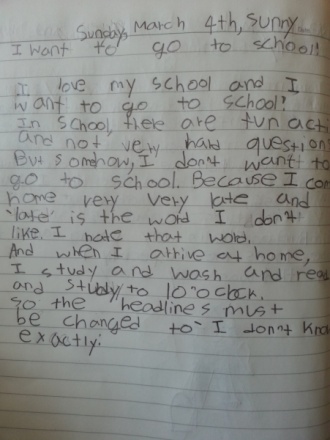 Sunday, March 4th, Sunny
I want to go to school!
I love my school and I
want to go to school!
In school, there are fun acti
and not very hard question
But somehow, I don't want to
go to school. Because I com
home very very late and
'late' is the word I don't
like. I hate that word.
And when I arrive at home,
I study and wash and read
and study to 10:o'clock.
so the headlines must
be changed to "I don't know
exactly.